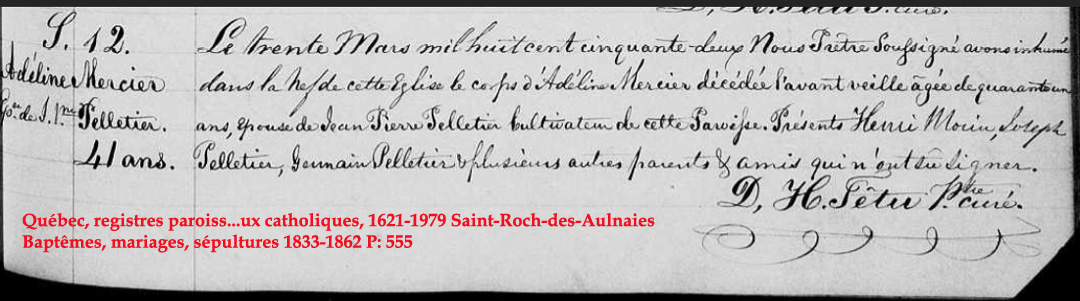 D, H. Têtu P. curé.
S. 12.
Adéline Mercier
Ép. de J. P.re Pelletier.
41 ans.
Le trente Mars mil huit cent cinquante-deux Nous Prêtre Soussigné avons inhumé
dans la Nef de cette Eglise le corps d'Adéline Mercier décédée l'avant veille âgée de quarante un
ans, épouse de Jean Pierre Pelletier Cultivateur de cette Paroisse. Présents Henri Morin, Joseph
Pelletier, Germain Pelletier & plusieurs autres parents & amis qui n'ont su signer.
D, H. Têtu Ptre curé.
Québec, registres paroiss...ux catholiques, 1621-1979 Saint-Roch-des-Aulnaies
Baptêmes, mariages, sépultures 1833-1862 P: 555